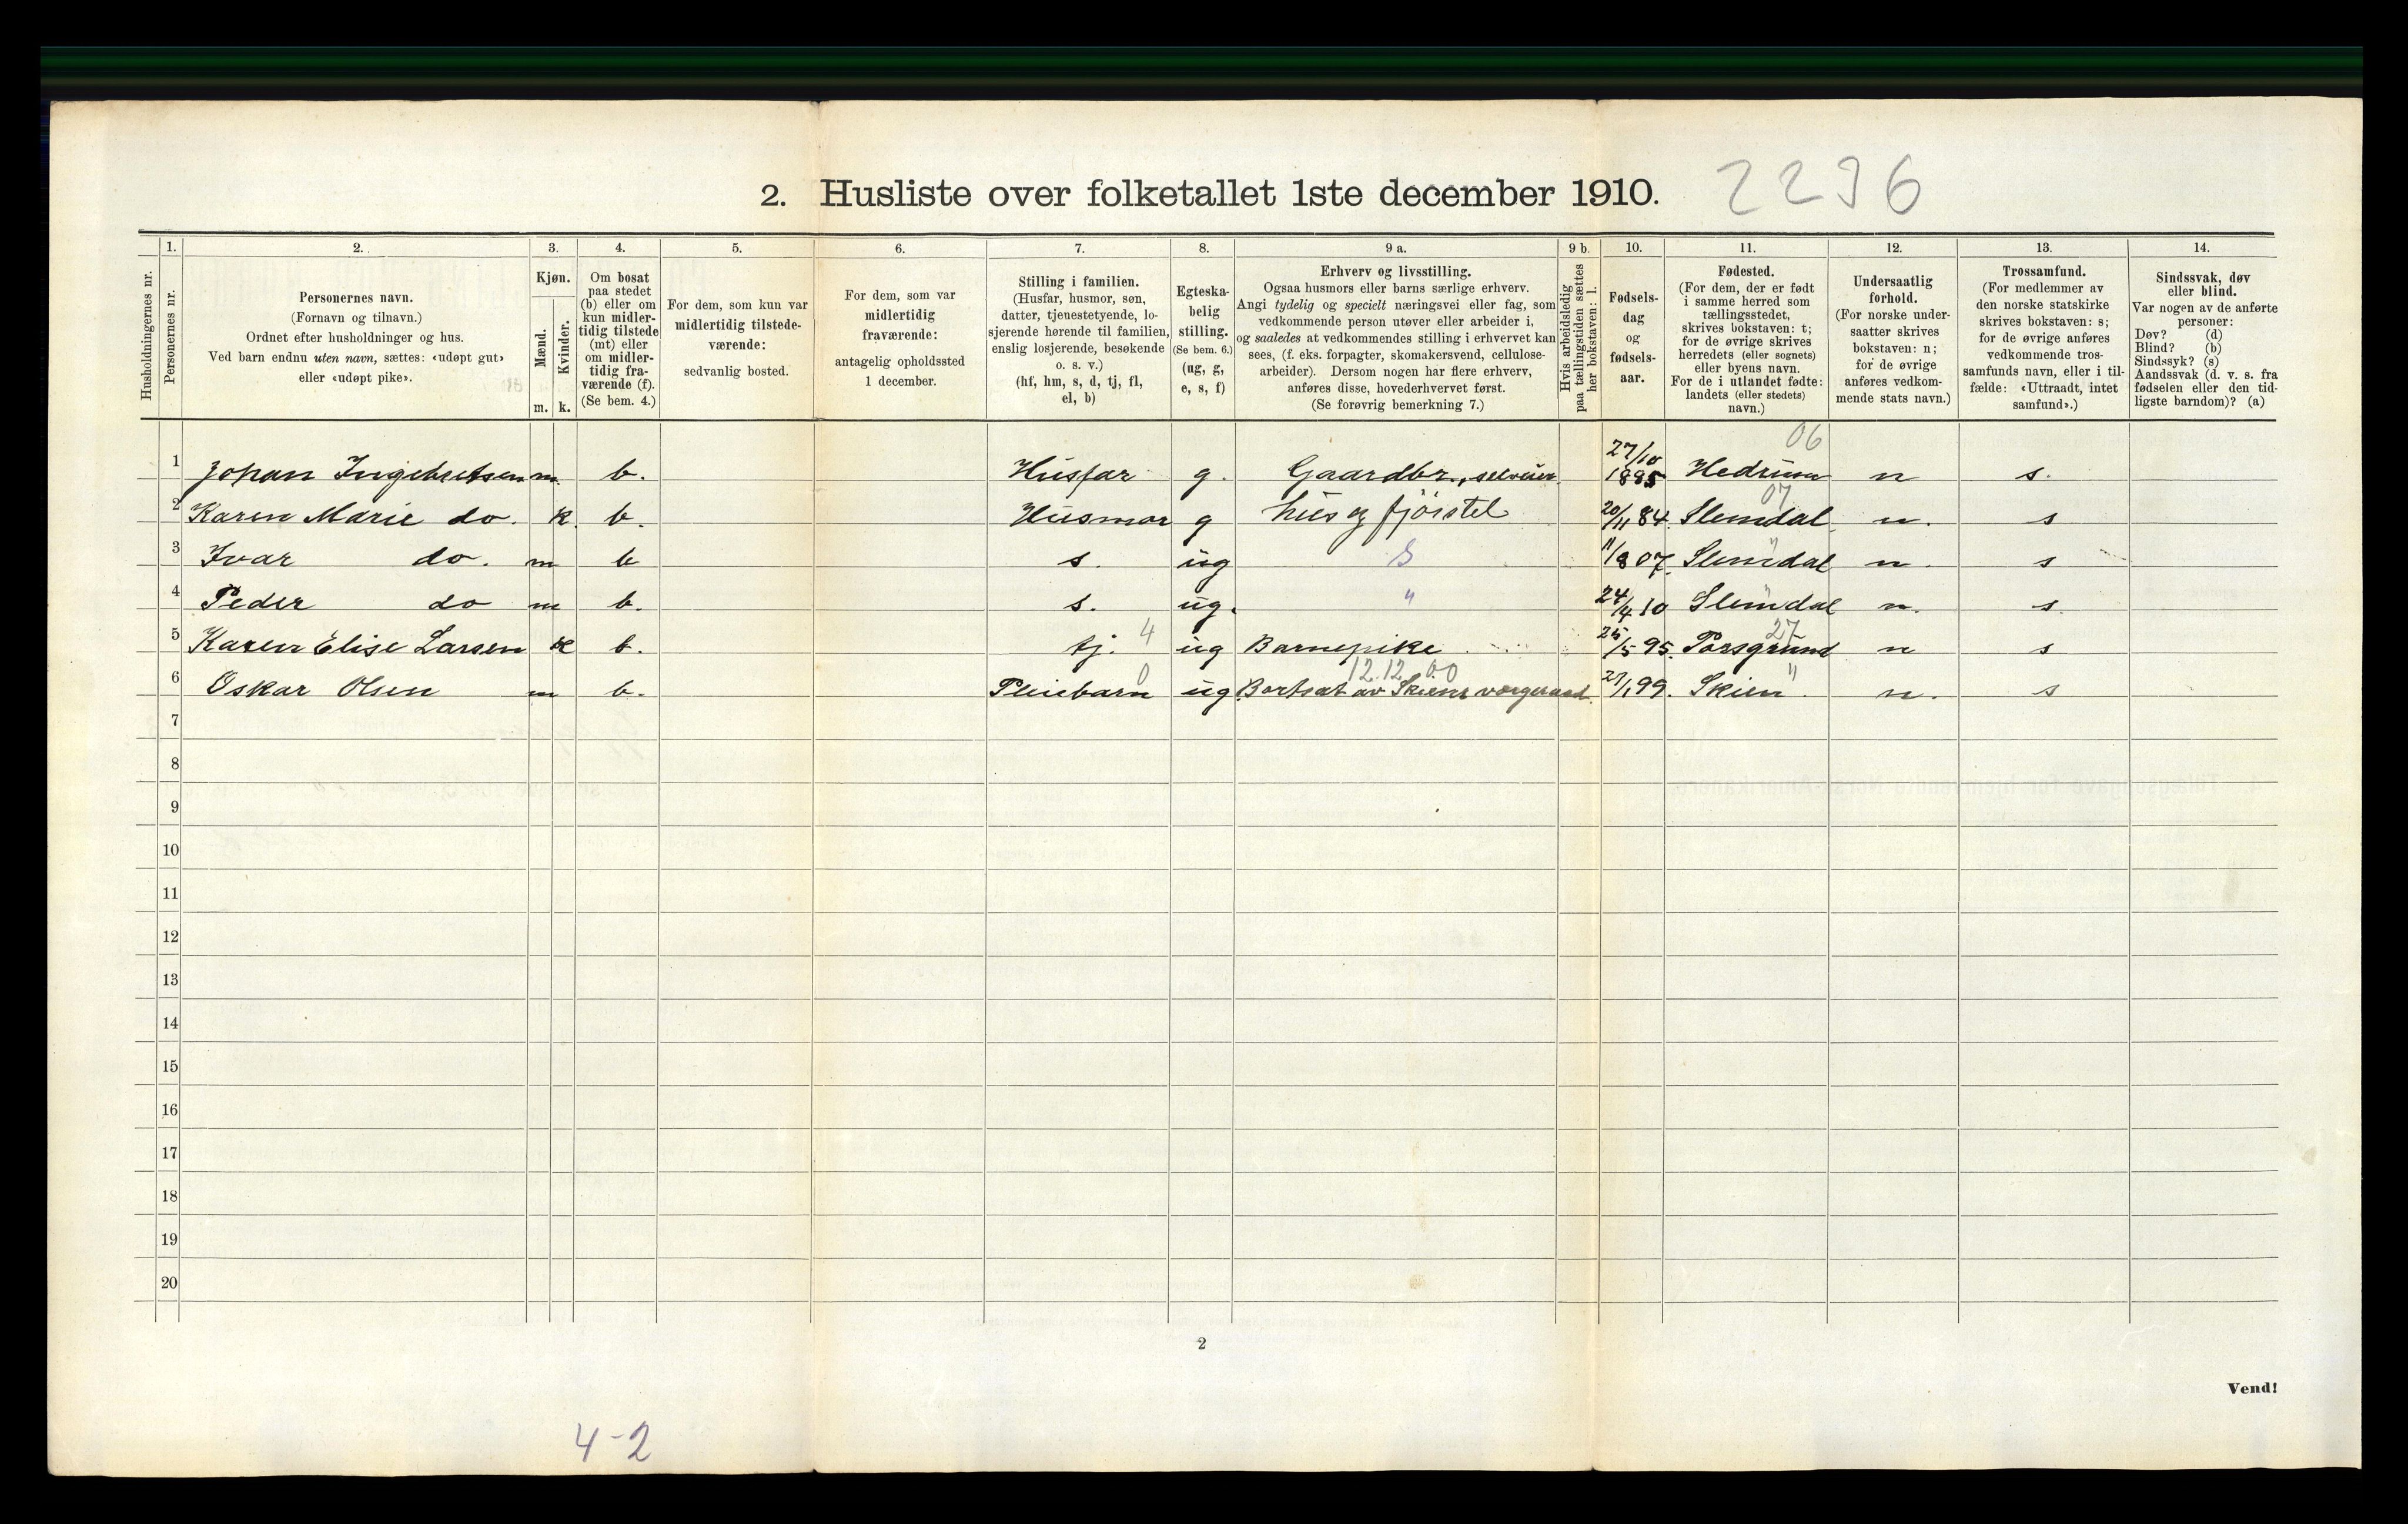 2. Husliste over folketallet 1ste december 1910. 2236
Husholdningernes nr.
1. Personernes nr.
2. Personernes navn.
(Fornavn og tilnavn.)
Ordnet efter husholdninger og hus.
Ved barn endnu uten navn, sættes: «udøpt gut»
eller «udøpt pike».
3. Kjøn.
Mænd. m.
Kvinder. k.
4. Om bosat
paa stedet
(b) eller om
kun midler-
tidig tilstede
(mt) eller
om midler-
tidig fra-
værende (f).
(Se bem. 4.)
5. For dem, som kun var
midlertidig tilstede-
værende:
sedvanlig bosted.
6. For dem, som var
midlertidig
fraværende:
antagelig opholdssted
1 december.
7. Stilling i familien.
(Husfar, husmor, søn,
datter, tjenestetyende, lo-
sjerende hørende til familien,
enslig losjerende, besøkende
o. s. v.)
(hf, hm, s, d, tj, fl,
el, b)
8. Egteska-
belig
stilling.
(Se bem. 6.)
(ug, g,
e, s, f)
9 a. Erhverv og livsstilling.
Ogsaa husmors eller barns særlige erhverv.
Angi tydelig og specielt næringsvei eller fag, som
vedkommende person utøver eller arbeider i,
og saaledes at vedkommendes stilling i erhvervet kan
sees, (f. eks. forpagter, skomakersvend, cellulose-
arbeider). Dersom nogen har flere erhverv,
anføres disse, hovederhvervet først.
(Se forøvrig bemerkning 7.)
9 b. Hvis arbeidsledig
paa tællingstiden sættes
her bokstaven: l.
10. Fødsels-
dag
og
fødsels-
aar.
11. Fødested.
(For dem, der er født
i samme herred som
tællingsstedet,
skrives bokstaven: t;
for de øvrige skrives
herredets (eller sognets)
eller byens navn.
For de i utlandet fødte:
landets (eller stedets)
navn.)
12. Undersaatlig
forhold.
(For norske under-
saatter skrives
bokstaven: n;
for de øvrige
anføres vedkom-
mende stats navn.)
13. Trossamfund.
(For medlemmer av
den norske statskirke
skrives bokstaven: s;
for de øvrige anføres
vedkommende tros-
samfunds navn, eller i til-
fælde: «Uttraadt, intet
samfund».)
14. Sindssvak, døv
eller blind.
Var nogen av de anførte
personer:
Døv? (d)
Blind? (b)
Sindssyk? (s)
Aandssvak (d. v. s. fra
fødselen eller den tid-
ligste barndom)? (a)
06
1 Johan Ingebretsen m. b. Husfar g. Gaardbr., selveier 27/10 1885 Hedrum n s.
07
2 Karen Marie do. k. b. Husmor g hus og fjørstel 20/11 84. Slemdal n. s
3 Ivar do. m b s. ug S 11/8 07. Slemdal " n. s
4 Peder do m b. s. ug. " 24/4 10 Slemdal " n. s.
4 27
5 Karen Elise Larsen k b. tj. ug Barnepike 25/5 95. Porsgrund n s
0 12.12.00
6 Oskar Olsen m b. Pleiebarn ug Bortsat av Skiens værgeraad. 27/1 99. Skien " n. s
7
8
9
10
11
12
13
14
15
16
17
18
19
20
2
Vend!
4-2